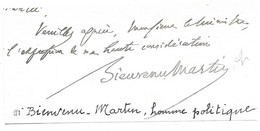 Veuillez agréer, Monsieur le Ministre,
l'expression de ma haute considération
Bienvenu Martin
Bienvenu-Martin, homme politique